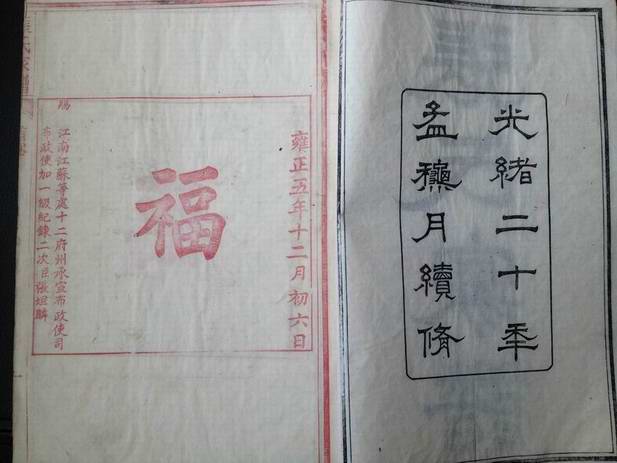 光緒二十年
孟龝月續脩
雍正五年十二月初六日
福
賜
江南江蘇等處十二府州承宣布政使司
布政使加一級紀錄二次臣張坦麟
氏家譜